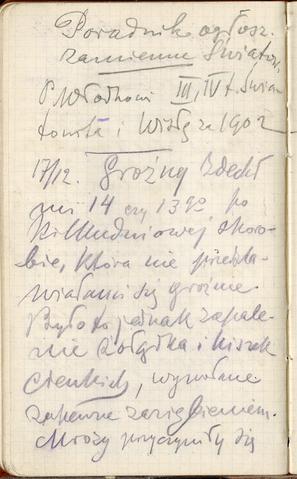 Poradnik ogłosz.
zamienne Światow.
P. Włodkowi III, IV t. Świa
towita i Wisłę za 1902
17/12. Groźny zdechł
mi 14 czy 13go po
kilkudniowej choro-
bie, która nie przedsta-
wiała mi się groźnie.
Było to jednak zapale-
nie żołądka i kiszek
cienkich, wywołane
zapewne zaziębieniem.
Mrozy przyczyniły się